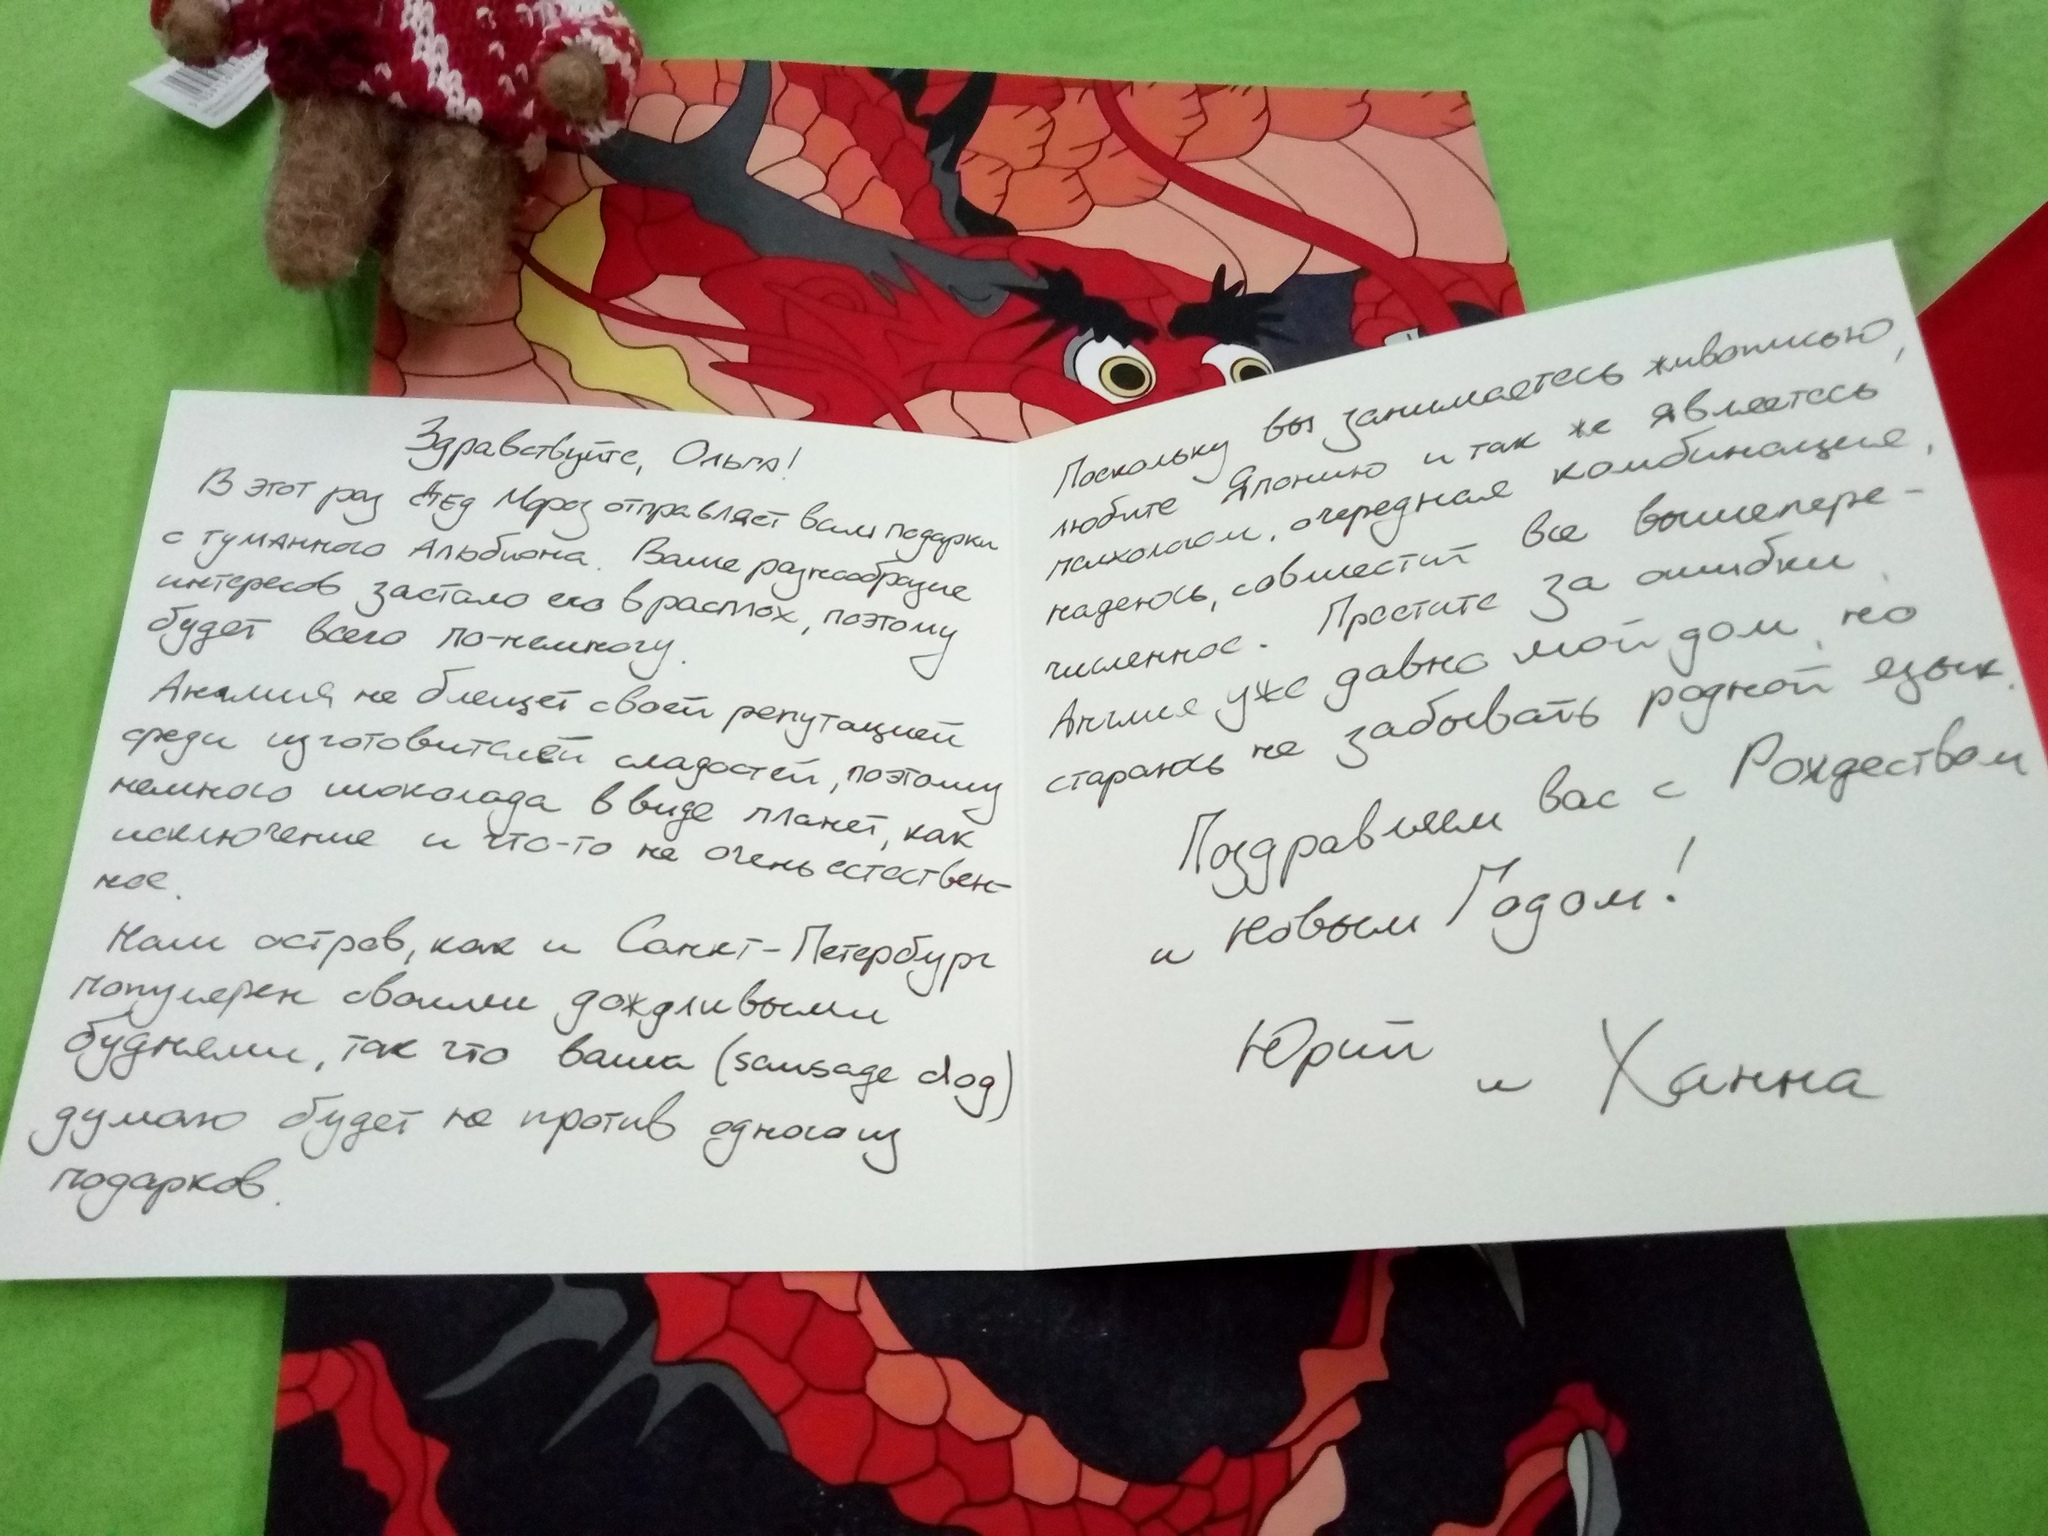 Здравствуйте, Ольга!
В этот раз Дед Мороз отправляет вам подарки
с туманного Альбиона. Ваше разнообразие
интересов застало его врасплох, поэтому
будет всего по-немногу.
Англия не блещет своей репутацией
среди изготовителей сладостей, поэтому
немного шоколада в виде планет, как
исключение и что-то не очень естествен-
ное.
Наш остров, как и Санкт-Петербург
популярен своими дождливыми
буднями, так что ваша (sausage dog)
думаю будет не против одного из
подарков.
Поскольку вы занимаетесь живописью,
любите Японию и так же являетесь
психологом, очередная комбинация,
надеюсь, совместит все вышепере-
численное. Простите за ошибки,
Англия уже давно мой дом, но
стараюсь не забывать родной язык.
Поздравляем вас с Рождеством
и Новым Годом!
Юрий и Ханна